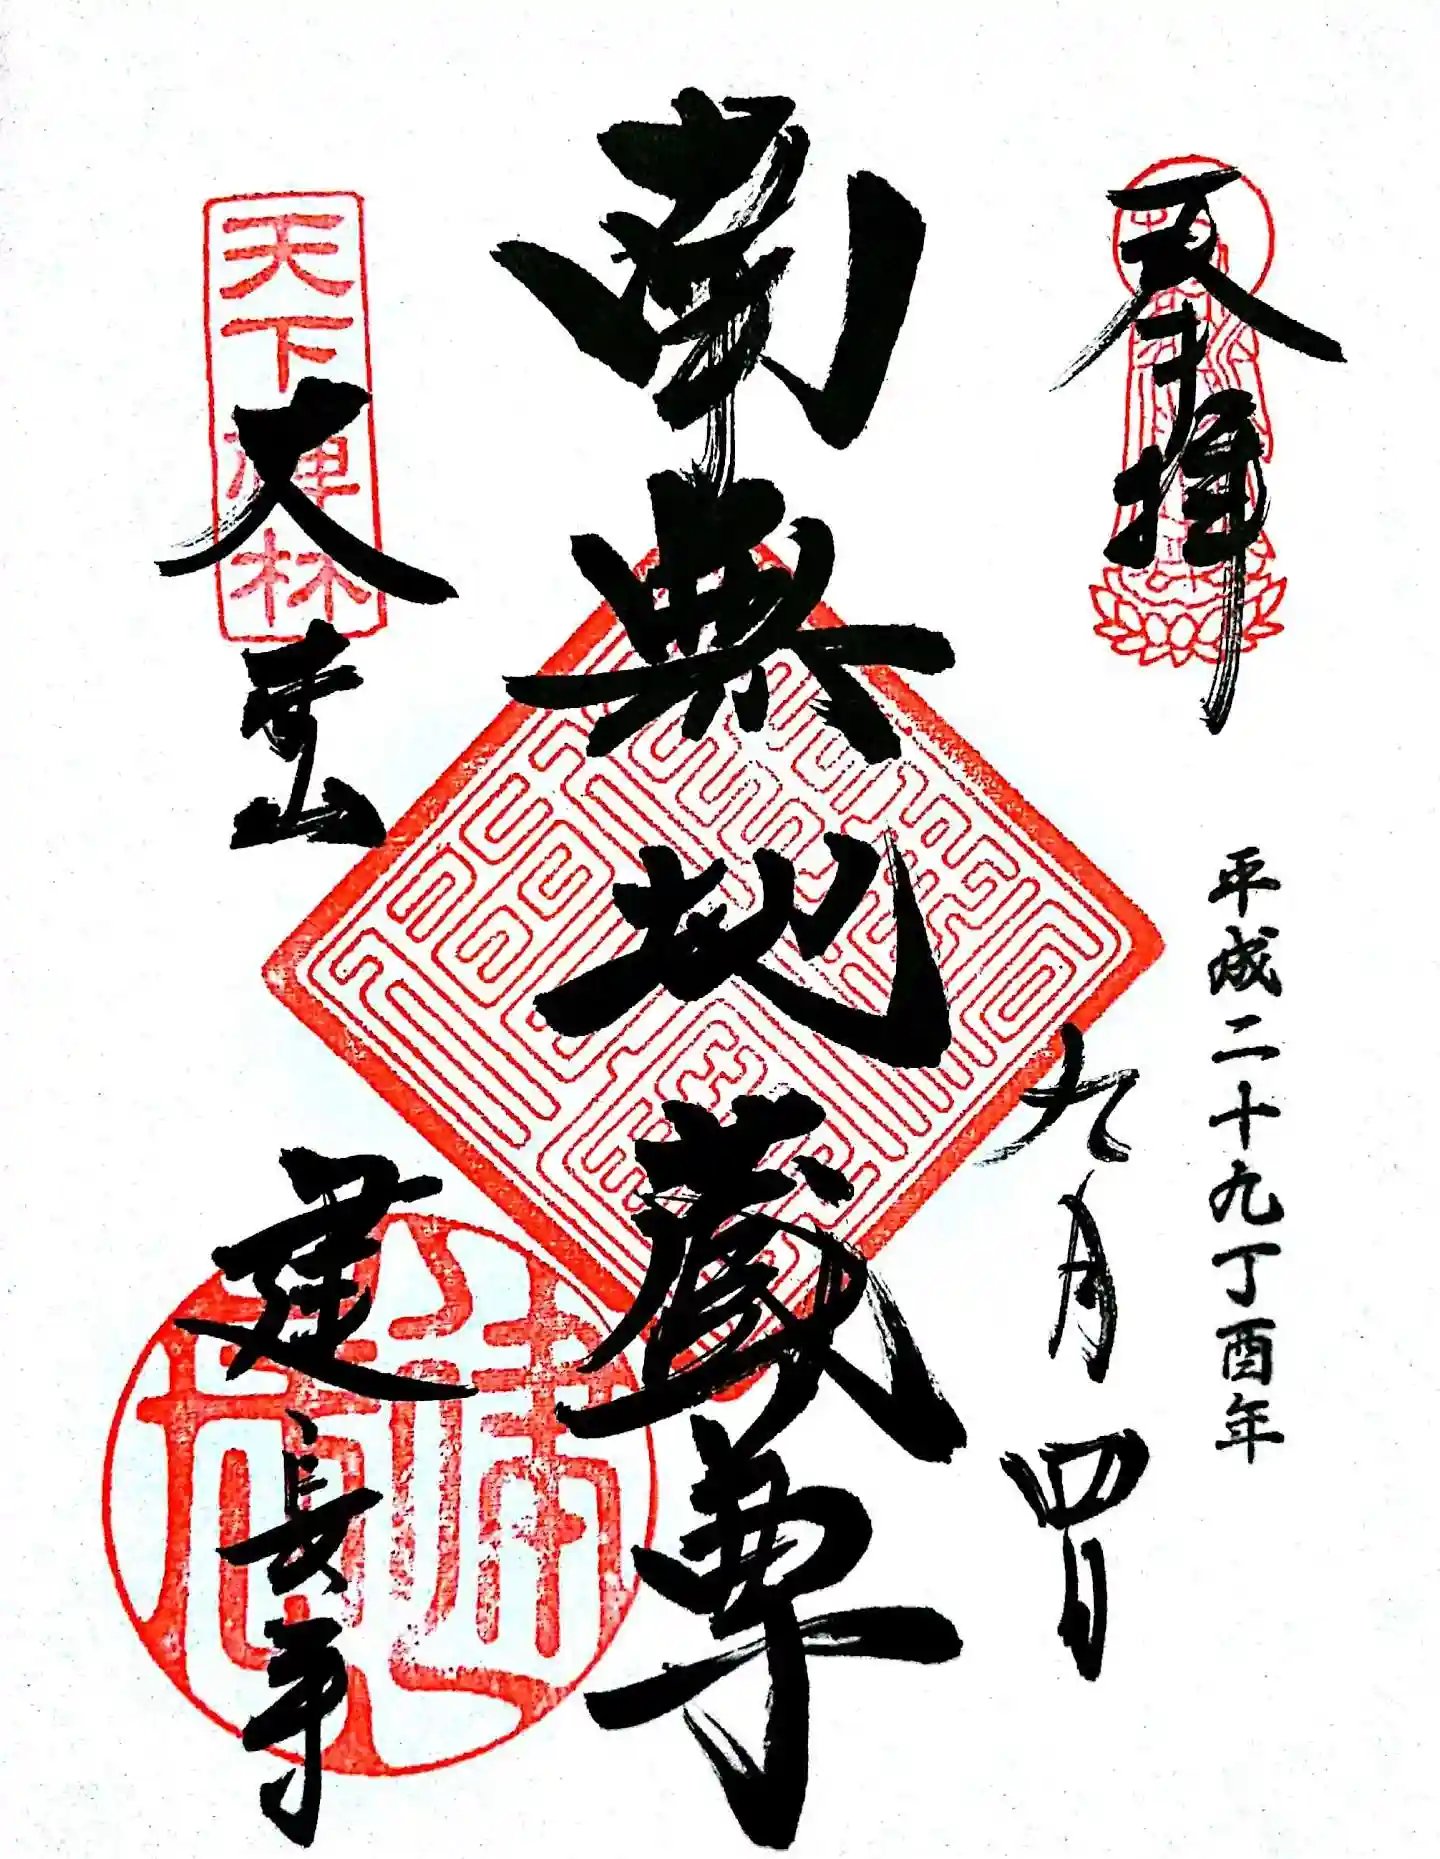 奉拝
平成二十九丁酉年
九月四日
南無地蔵尊
天下禅林
大本山
建長寺